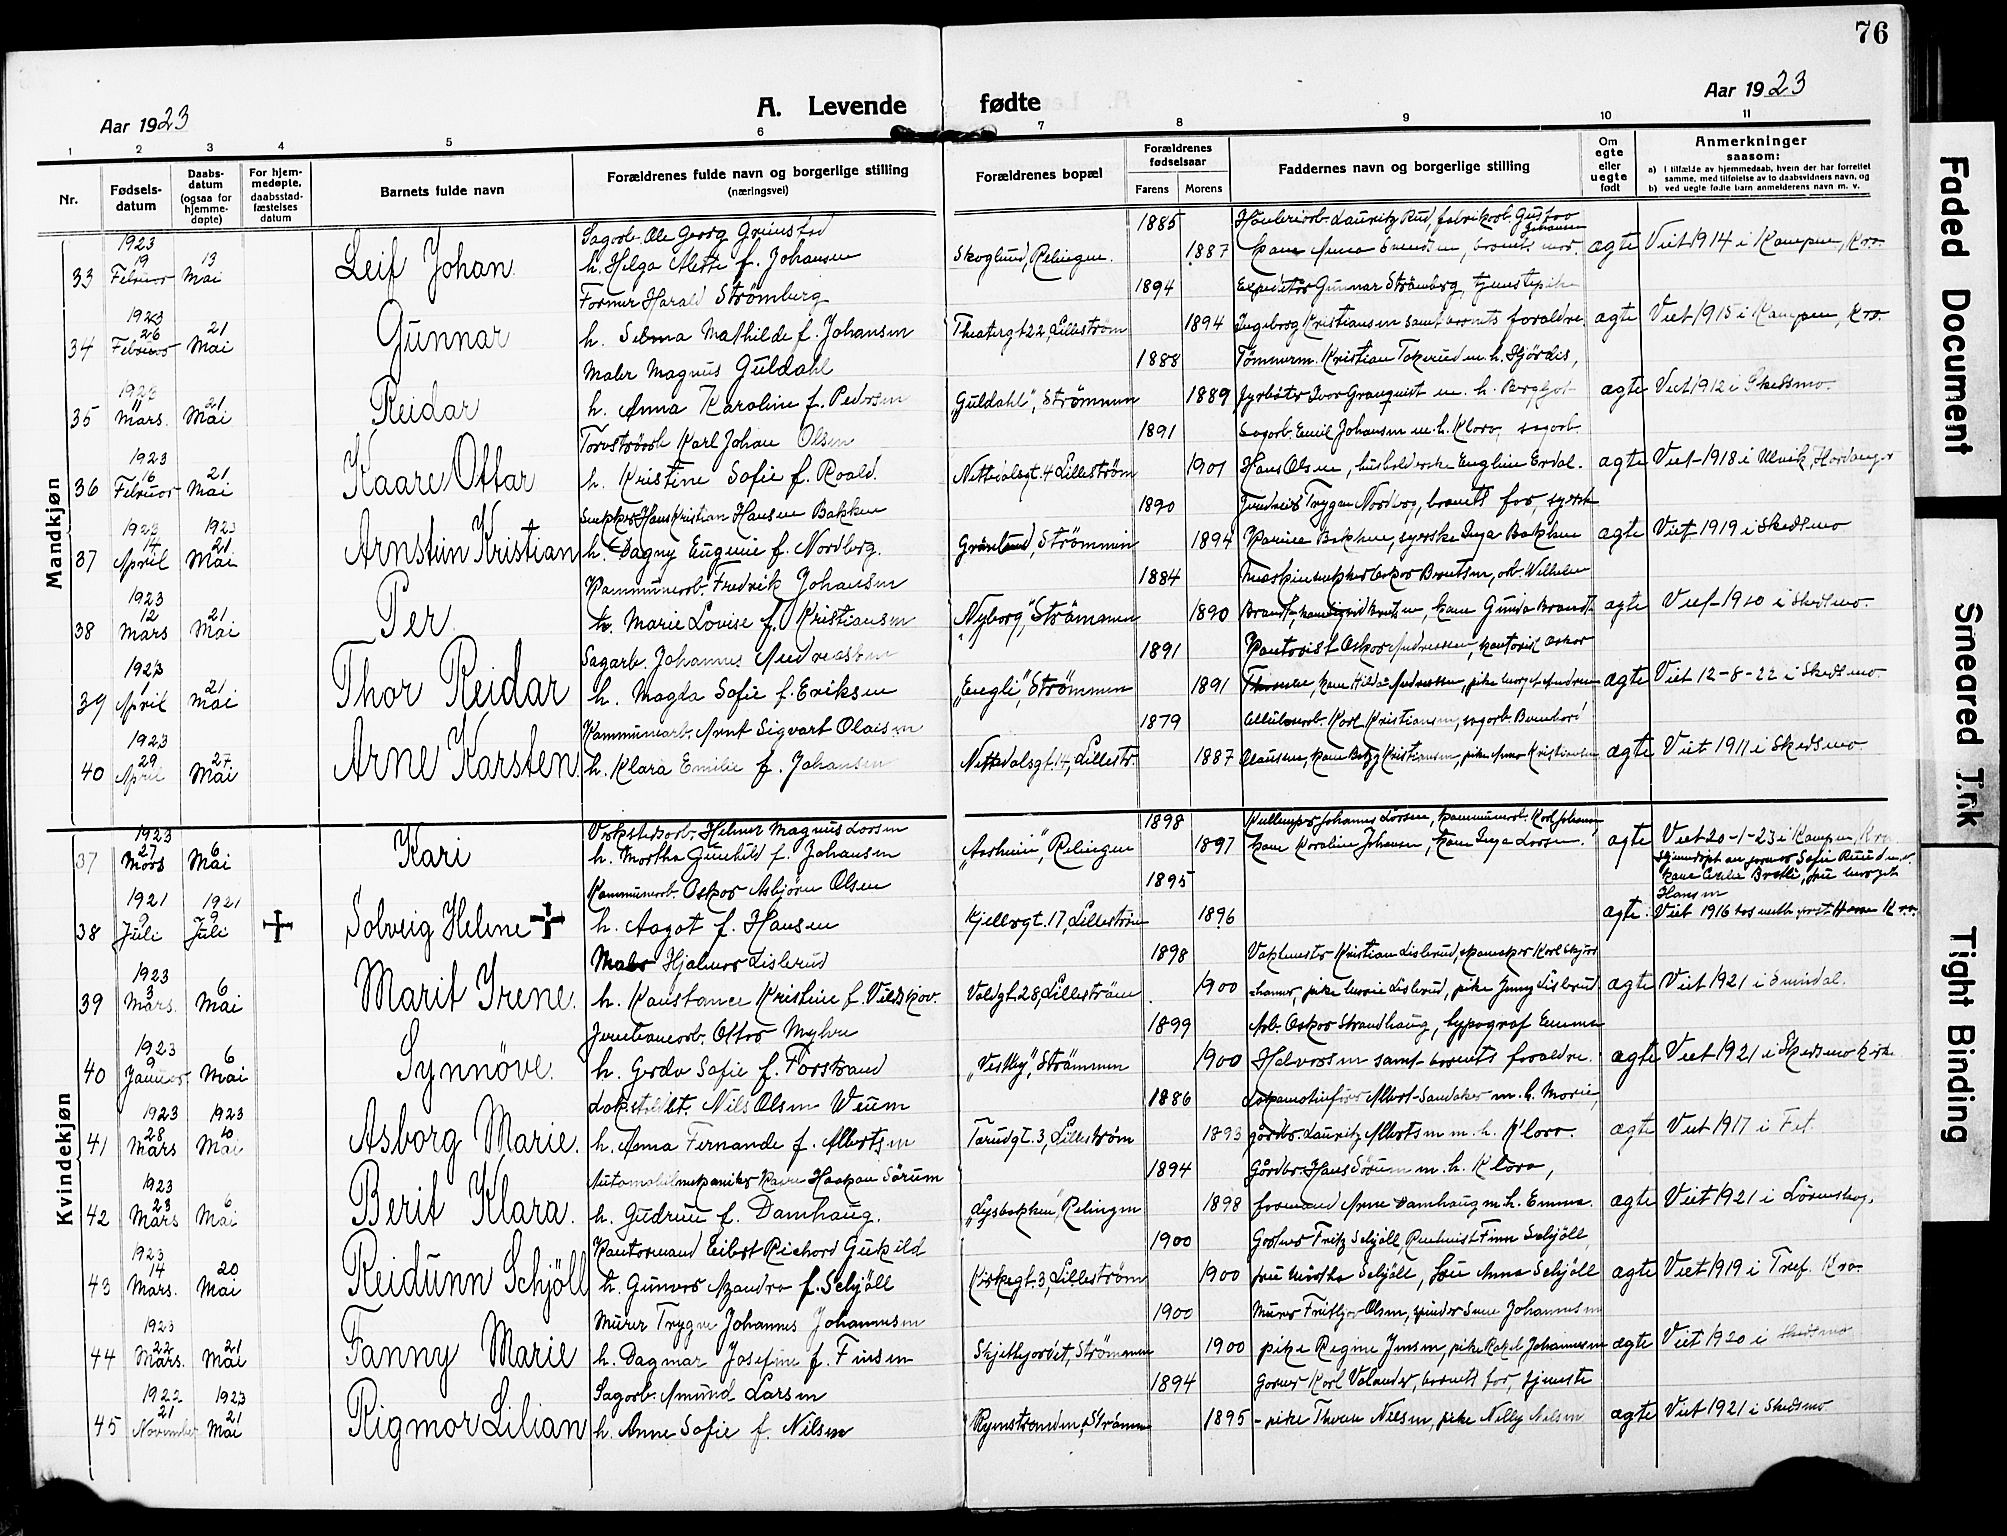 76
Aar 1923
A. Levende fødte
Aar 1923
1 2 3 4 5 6 7 8 9 10 11
Nr.
Fødsels-
datum
Daabs-
datum
(ogsaa for
hjemme-
døpte)
For hjem-
medøpte,
daabsstad-
fæstelses
datum
Barnets fulde navn
Forældrenes fulde navn og borgerlige stilling
(næringsvei)
Forældrenes bopæl
Forældrenes
fødselsaar
Farens Morens
Faddernes navn og borgerlige stilling
Om
egte
eller
uegte
født
Anmerkninger
saasom:
a) I tilfælde av hjemmedaab, hvem der har forrettet
samme, med tilføielse av to daabsvidners navn, og
b) ved uegte fødte barn anmelderens navn m. v.
Mandkjøn
1923 Sagarb. Ole Georg Grinstad 1885 Lauritz Rud, fabrikarb. Gustav Johansen
33 19 Februar 13 Mai Leif Johan h. Helga Alette f. Johansen Skoglund, Rælingen. 1887 barnets mor. ægte Viet 1914 i Kampen, Kra.
1923 Former Harald Strömberg 1894 Expeditør Gunnar Strömberg, tjenestepike
34 26 Februar 21 Mai Gunnar h. Selma Mathilde f. Johansen Theatergt. 22, Lilleström 1894 Ingeborg Kristiansen samt barnets forældre. ægte Viet 1915 i Kampen, Kra.
1923 Maler Magnus Guldahl 1888 Tömmerm. Kristian Tokerud m. h. Hjördis,
35 Mars. 21 Mai Reidar h. Anna Karoline f. Pedersen "Guldahl", Strömmen 1889 Fyrböter Ivar Granquist m. h. Borghot ægte Viet 1912 i Skedsmo.
1923 Karl Johan Olsen 1891 Sagarb. Emil Johansen m. h. Klara, sagarb.
36 16 Februar 21 Mai Kaare Ottar h. Kristine Sofie f. Roald. Nittedalsgt. 4 Lilleström 1901 Hans Olsen, husholderske Engline Erdal. ægte Viet 1918 i Ulvik, Hardanger
1923 1923 Snekker Hans Kristian Hansen Bakken 1890 Trygve Nordberg, barnets far, syerske
37 14 April 21 Mai Arnstein Kristian h. Dagny Eugenie f. Nordberg. Grönland, Strömmen 1894 Bakken, syerske Inga Bakken ægte Viet 1919 i Skedsmo
1923 Kommunearb. Fredrik Johansen 1884 Maskinsnekker Oskar Brantsen, arb. Wilhelm
38 12 Mars 21 Mai Per h. Marie Lovise f. Kristiansen "Nyborg", Strömmen 1890 kone Gunda Brandt ægte Viet 1910 i Skedsmo.
1923 Sagarb. Johannes Andreassen 1891 Kontorist Oskar Andreassen, kontorist Oskar
39 1 April 21 Mai Thor Reidar h. Magda Sofie f. Eriksen "Engli", Strömmen 1891 kone Hilda Andreassen, pike Andreassen ægte Viet 12-8-22 i Skedsmo.
1923 Kommunearb. Arnt Sigvart Olaisen 1879 Karl Kristiansen, sagarb. Bernhard
40 29 April 27 Mai Arne Karsten h. Klara Emilie f. Johansen Nittedalsgt. 14, Lillestr. 1887 Clausen, kone Kristiansen, pike Anna Kristiansen ægte Viet 1911 i Skedsmo
Kvindekjøn
1923 Verkstedsarb. Helmer Magnus Larsen 1898 Johannes Larsen, kommunearb. Karl Johansen
37 27 Mars 6 Mai Kari h. Martha Gunhild f. Johansen "Aasheim", Rælingen 1897 kone Karoline Johansen, kone Inga Larsen. ægte Viet 20-1-23 i Kampen, Kra
1921 1921 Kommunearb. Oskar Asbjörn Olsen 1895 Hjemdöpt av jormor Sofie Ruud
38 9 Juli 9 Juli + Solveig Helene + h. Aagot f. Hansen Kjellergt. 17, Lilleström 1896 ægte. Hansen Viet 1916 hos meth. prest Kra.
1923 Maler Hjalmar Lislerud 1898 Vaktmester Kristian Lislerud,
39 3 Mars. 6 Mai Marit Irene. h. Konstance Kristine f. Vildskov. Voldgt. 28, Lilleström 1900 pike Lislerud, pike Jenny Lislerud ægte Viet 1921 i Enindal.
1923 Jernbanearb. Ottar Myhre 1899 Arb. Oskar Strandhaug, typograf Emma
40 9 Januar 6 Mai Synnöve. h. Gerda Sofie f. Forstrand "Vestby", Strömmen 1900 Halvorsen samt barnets forældre. ægte Viet 1921 i Skedsmo kirke
1923 1923 Nils Olsen Weum 1886 Lokomotivförer Albert Sandaker m. h. Marie,
41 28 Mars 10 Mai Asborg Marie. h. Anna Fernande f. Albertsen Torudgt. 3, Lilleström 1893 gårdbr. Lauritz Albertsen m. h. Klara. ægte Viet 1917 i Fet.
1923 Automobilmekaniker Haakon Sörum 1894 Gårdbr. Hans Sörum m. h. Klara,
42 23 Mars 6 Mai Berit Klara. h. Gudrun f. Damhaug. "Lysbakken", Rælingen 1898 formand Arne Damhaug m. h. Emma. ægte Viet 1921 i Lörenskog.
1923 Kontormand Eilert Richard Gukild 1900 Gartner Fritz Schjöll, Finn Schjöll,
43 14 Mars. 20 Mai Reidunn Schjöll h. Gunvor f. Schjöll Kirkegt. 3, Lilleström 1900 fru Martha Schjöll, fru Anna Schjöll ægte Viet 1919 i Tref. Kra.
1923 Murer Trygve Johannes Johannesen 1900 Murer Fritjof Olsen, Johannesen
44 22 Mars. 21 Mai Fanny Marie h. Dagmar Josefine f. Finsen Skjetlejordet, Strömmen 1900 pike Regine Jensen, pike Rakel Johannesen ægte Viet 1920 i Skedsmo
1922 1923 Sagarb. Amund Larsen 1894 Karl Volander, barnets far, tjeneste
45 21 November 21 Mai Rigmor Lilian h. Anne Sofie f. Nilsen Rymstranden, Strömmen 1895 -pike Nilsen, pike Nelly Nilsen ægte Viet 1921 i Skedsmo
Faded Document
Smeared Ink
Tight Binding